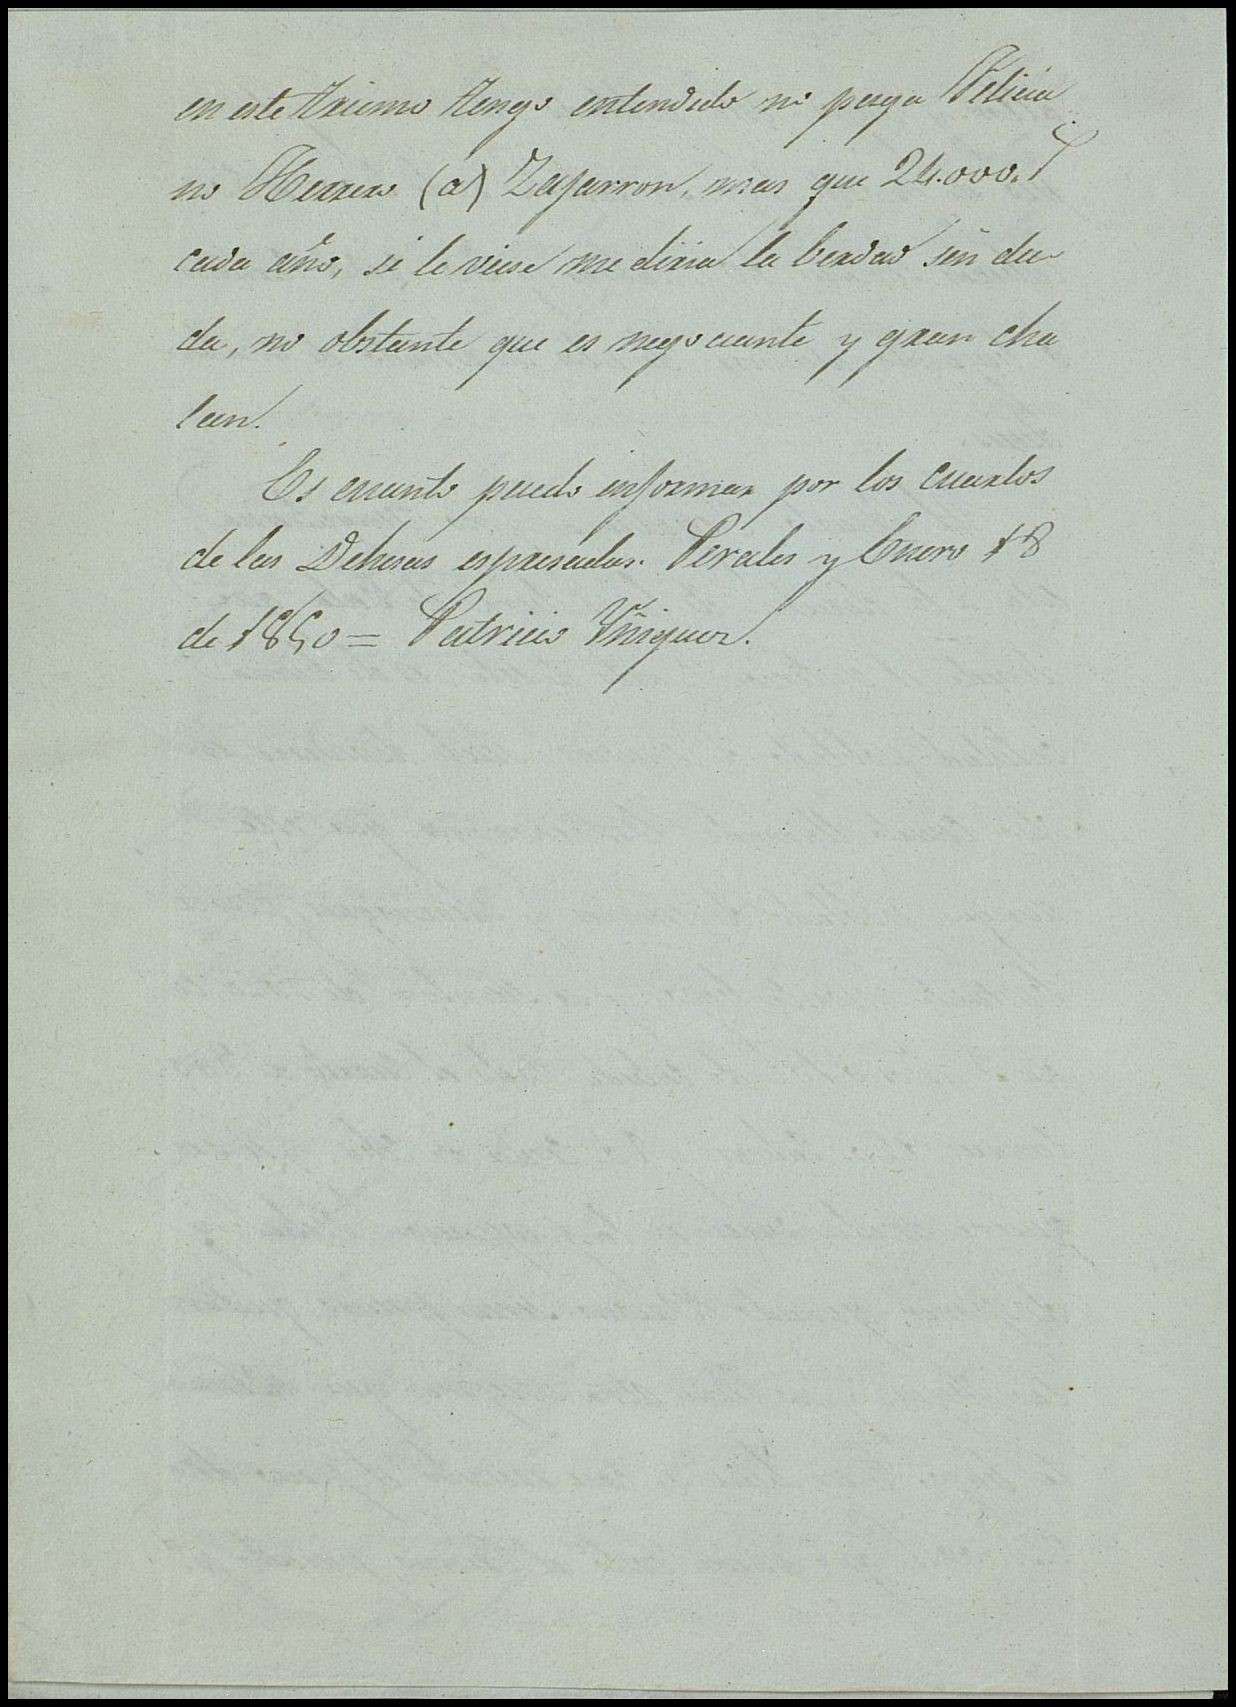 en este trienio tengo entendido no paga Felicia
no Herrero (a) Zafarron, mas que 24.000.
cada año, si le viese me diria la berdad sin du-
da, no obstante que es negociante y gran cha
lan.
Es cuanto puedo informar por los cuartos
de las Dehesas espresadas. Perales y Enero 18
de 1850 = Patricio Yñiguez.